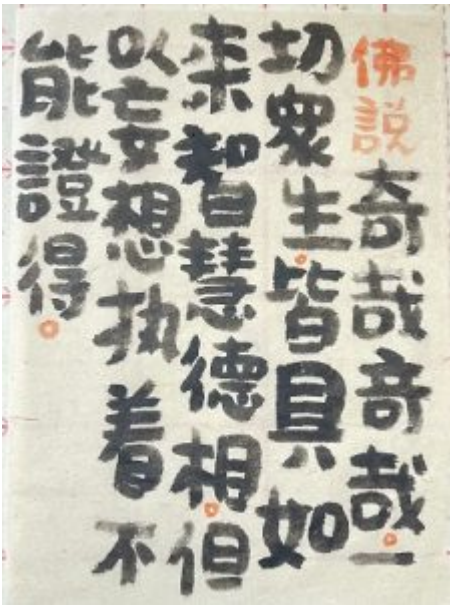 佛説奇哉奇哉。一
切衆生。皆具如
来智慧德相。但
以妄想执着不
能證得。